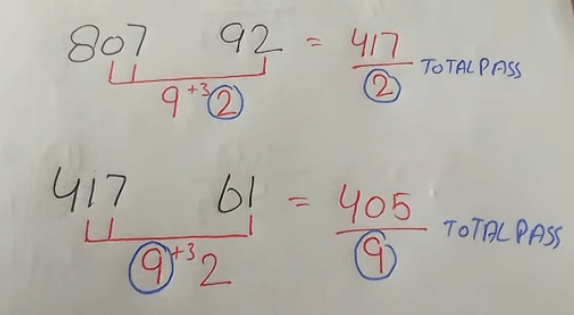 807 92 = 417
9 +3 2 2 TOTAL PASS
417 61 = 405
9 +3 2 9 TOTAL PASS